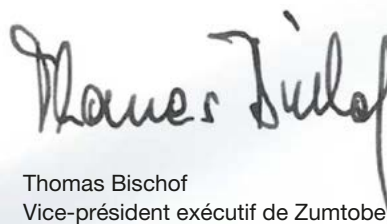 Thomas Bischof
Thomas Bischof
Vice-président exécutif de Zumtobe